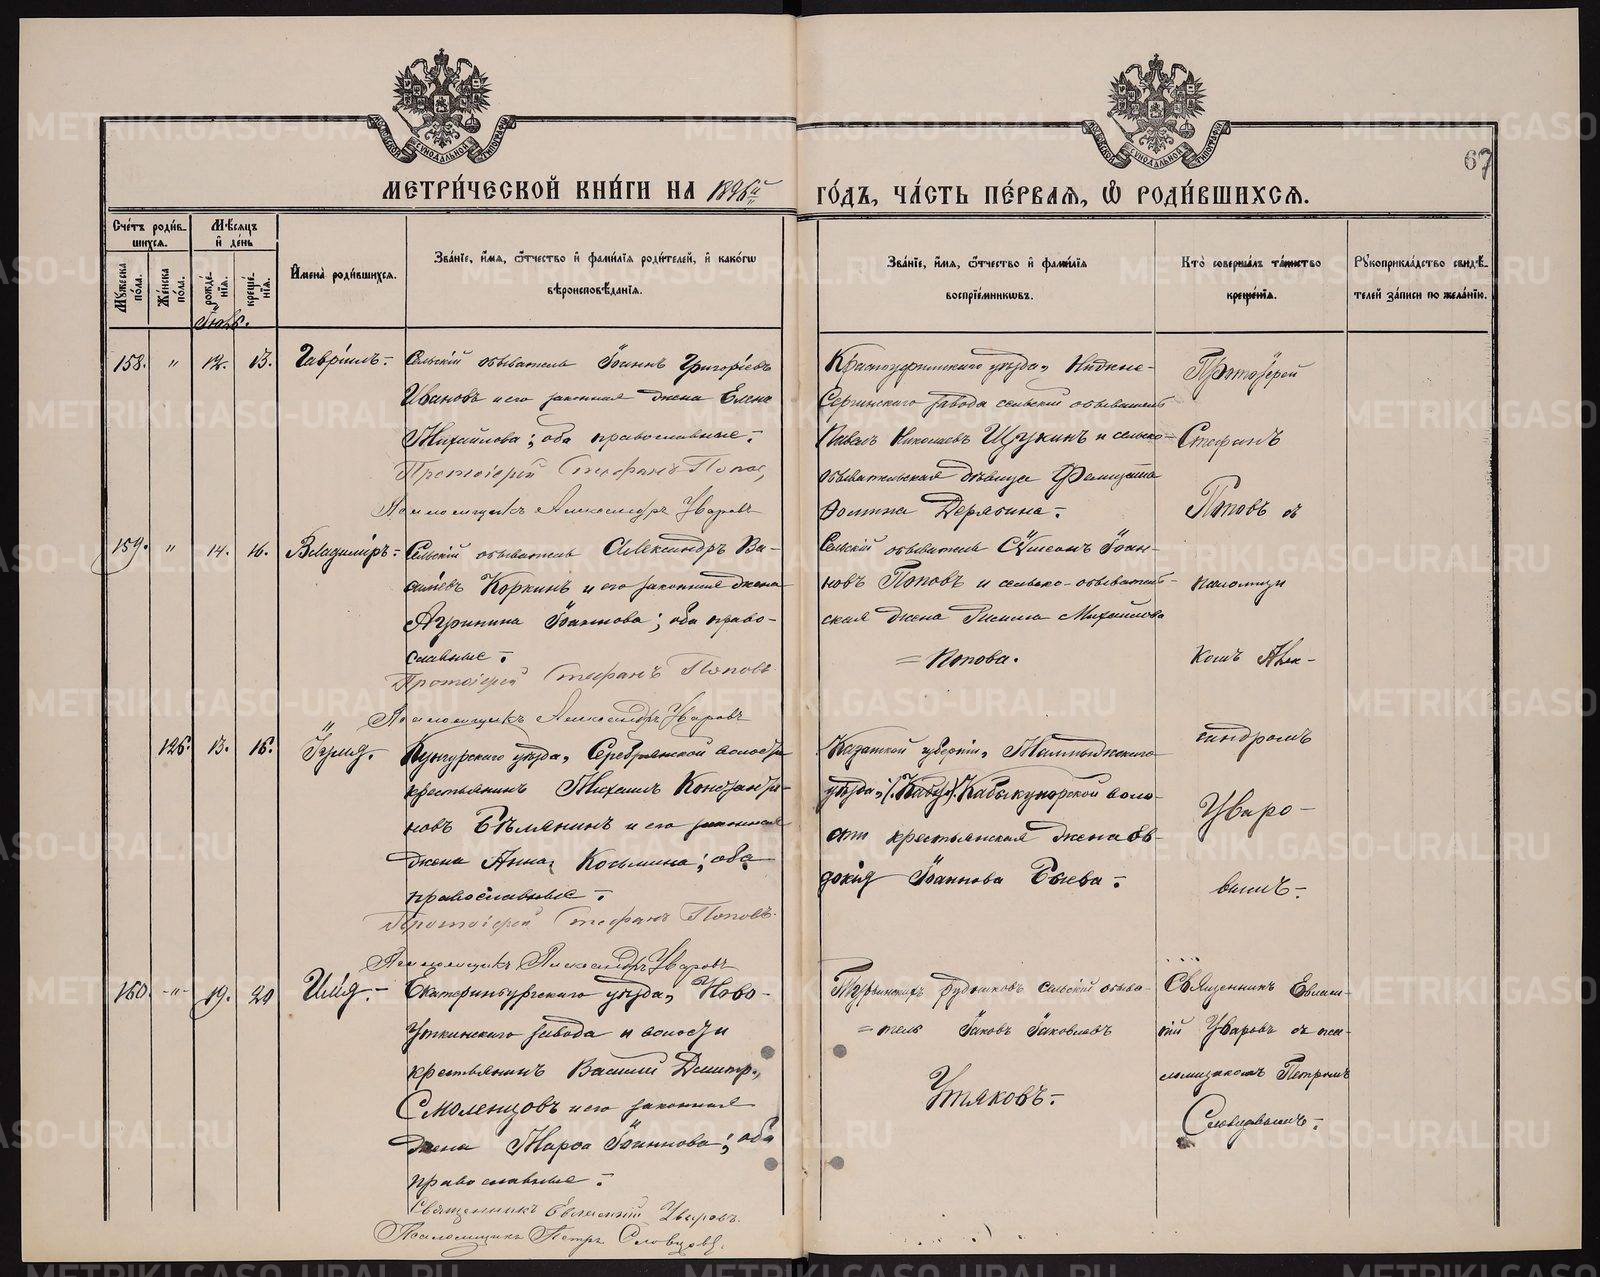 МЕТРИ́ЧЕСКОЙ КНИ́ГИ НА 1896й ГО́ДЪ, ЧА́СТЬ ПЕ́РВАЯ, Ѡ РОДИ́ВШИХСЯ.
67
Сче́тъ роди́вшихся.
Мѣ́сяцъ и́ де́нь
Му́жеска по́ла.
Же́нска по́ла.
рожде́нїя.
креще́нїя.
Имена̀ роди́вшихся.
Зва́нїе, и́мя, ѻ҆́тчество и́ фами́лїя роди́телей, и́ како́гѡ
вѣроисповѣ́данїя.
Зва́нїе, и́мя, ѻ҆́тчество и́ фами́лїя
воспрїе́мникѡвъ.
Кто̀ соверша́лъ та́инство
креще́нїя.
Рꙋкоприкла́дство свидѣ́телей за́писи по жела́нїю.
158. " 12. 13. Гавріилъ.-
Сельскій обыватель Іоаннъ Григоріевъ
Ивановъ и его законная жена Елена
Михайлова; оба православные.-
Протоіерей Стефанъ Попов,
Псаломщикъ Александръ Уваровъ
Красноуфимскаго уѣзда, Нижне-
Сергинскаго завода сельскій обыватель
Павелъ Николаевъ Щукинъ и сельско-
обывательская дѣвица Фелицата
Дерягина.-
Протоіерей
Стефанъ
Поповъ съ
псаломщи
комъ Алек-
сандромъ
Уваро-
вымъ.-
159. " 14. 16. Владиміръ.-
Сельскій обыватель Александръ Ва-
сильевъ Коркинъ и его законная жена
Агрипина Іоаннова; оба право-
славные.-
Протоіерей Стефанъ Поповъ
Псаломщикъ Александръ Уваровъ
Сельскій обыватель Сѵмеонъ Іоан-
новъ Поповъ и сельско-обыватель-
ская жена Михайлова
= Попова.
" 126. 13. 16. Іулія.
Кунгурскаго уѣзда, Серебрянской волости
крестьянинъ Михаилъ Константи-
новъ Бѣлянинъ и его законная
жена Анна Косьмина; оба
православные.-
Протоіерей Стефанъ Поповъ.
Псаломщикъ Александръ Уваровъ
Казанской губерніи, Мамадышскаго
уѣзда, Кабыкупорской воло-
сти крестьянская жена Ев-
докія Іоаннова Быева.-
160. -"- 19. 20 Илія.-
Екатеринбургскаго уѣзда, Ново-
Уткинскаго завода и волости
крестьянинъ Василій Димитр.
Смоленцовъ и его законная
жена Марѳа Іоаннова; оба
православные.-
Священникъ Евлампій Уваровъ.
Псаломщикъ Петръ Словцовъ.
Турьинскихъ рудниковъ сельскій обыва-
=тель Іаковъ Іаковлевъ
Утяковъ.-
Священникъ Евлам-
пій Уваровъ съ пса-
ломщикомъ Петромъ
Словцовымъ.-